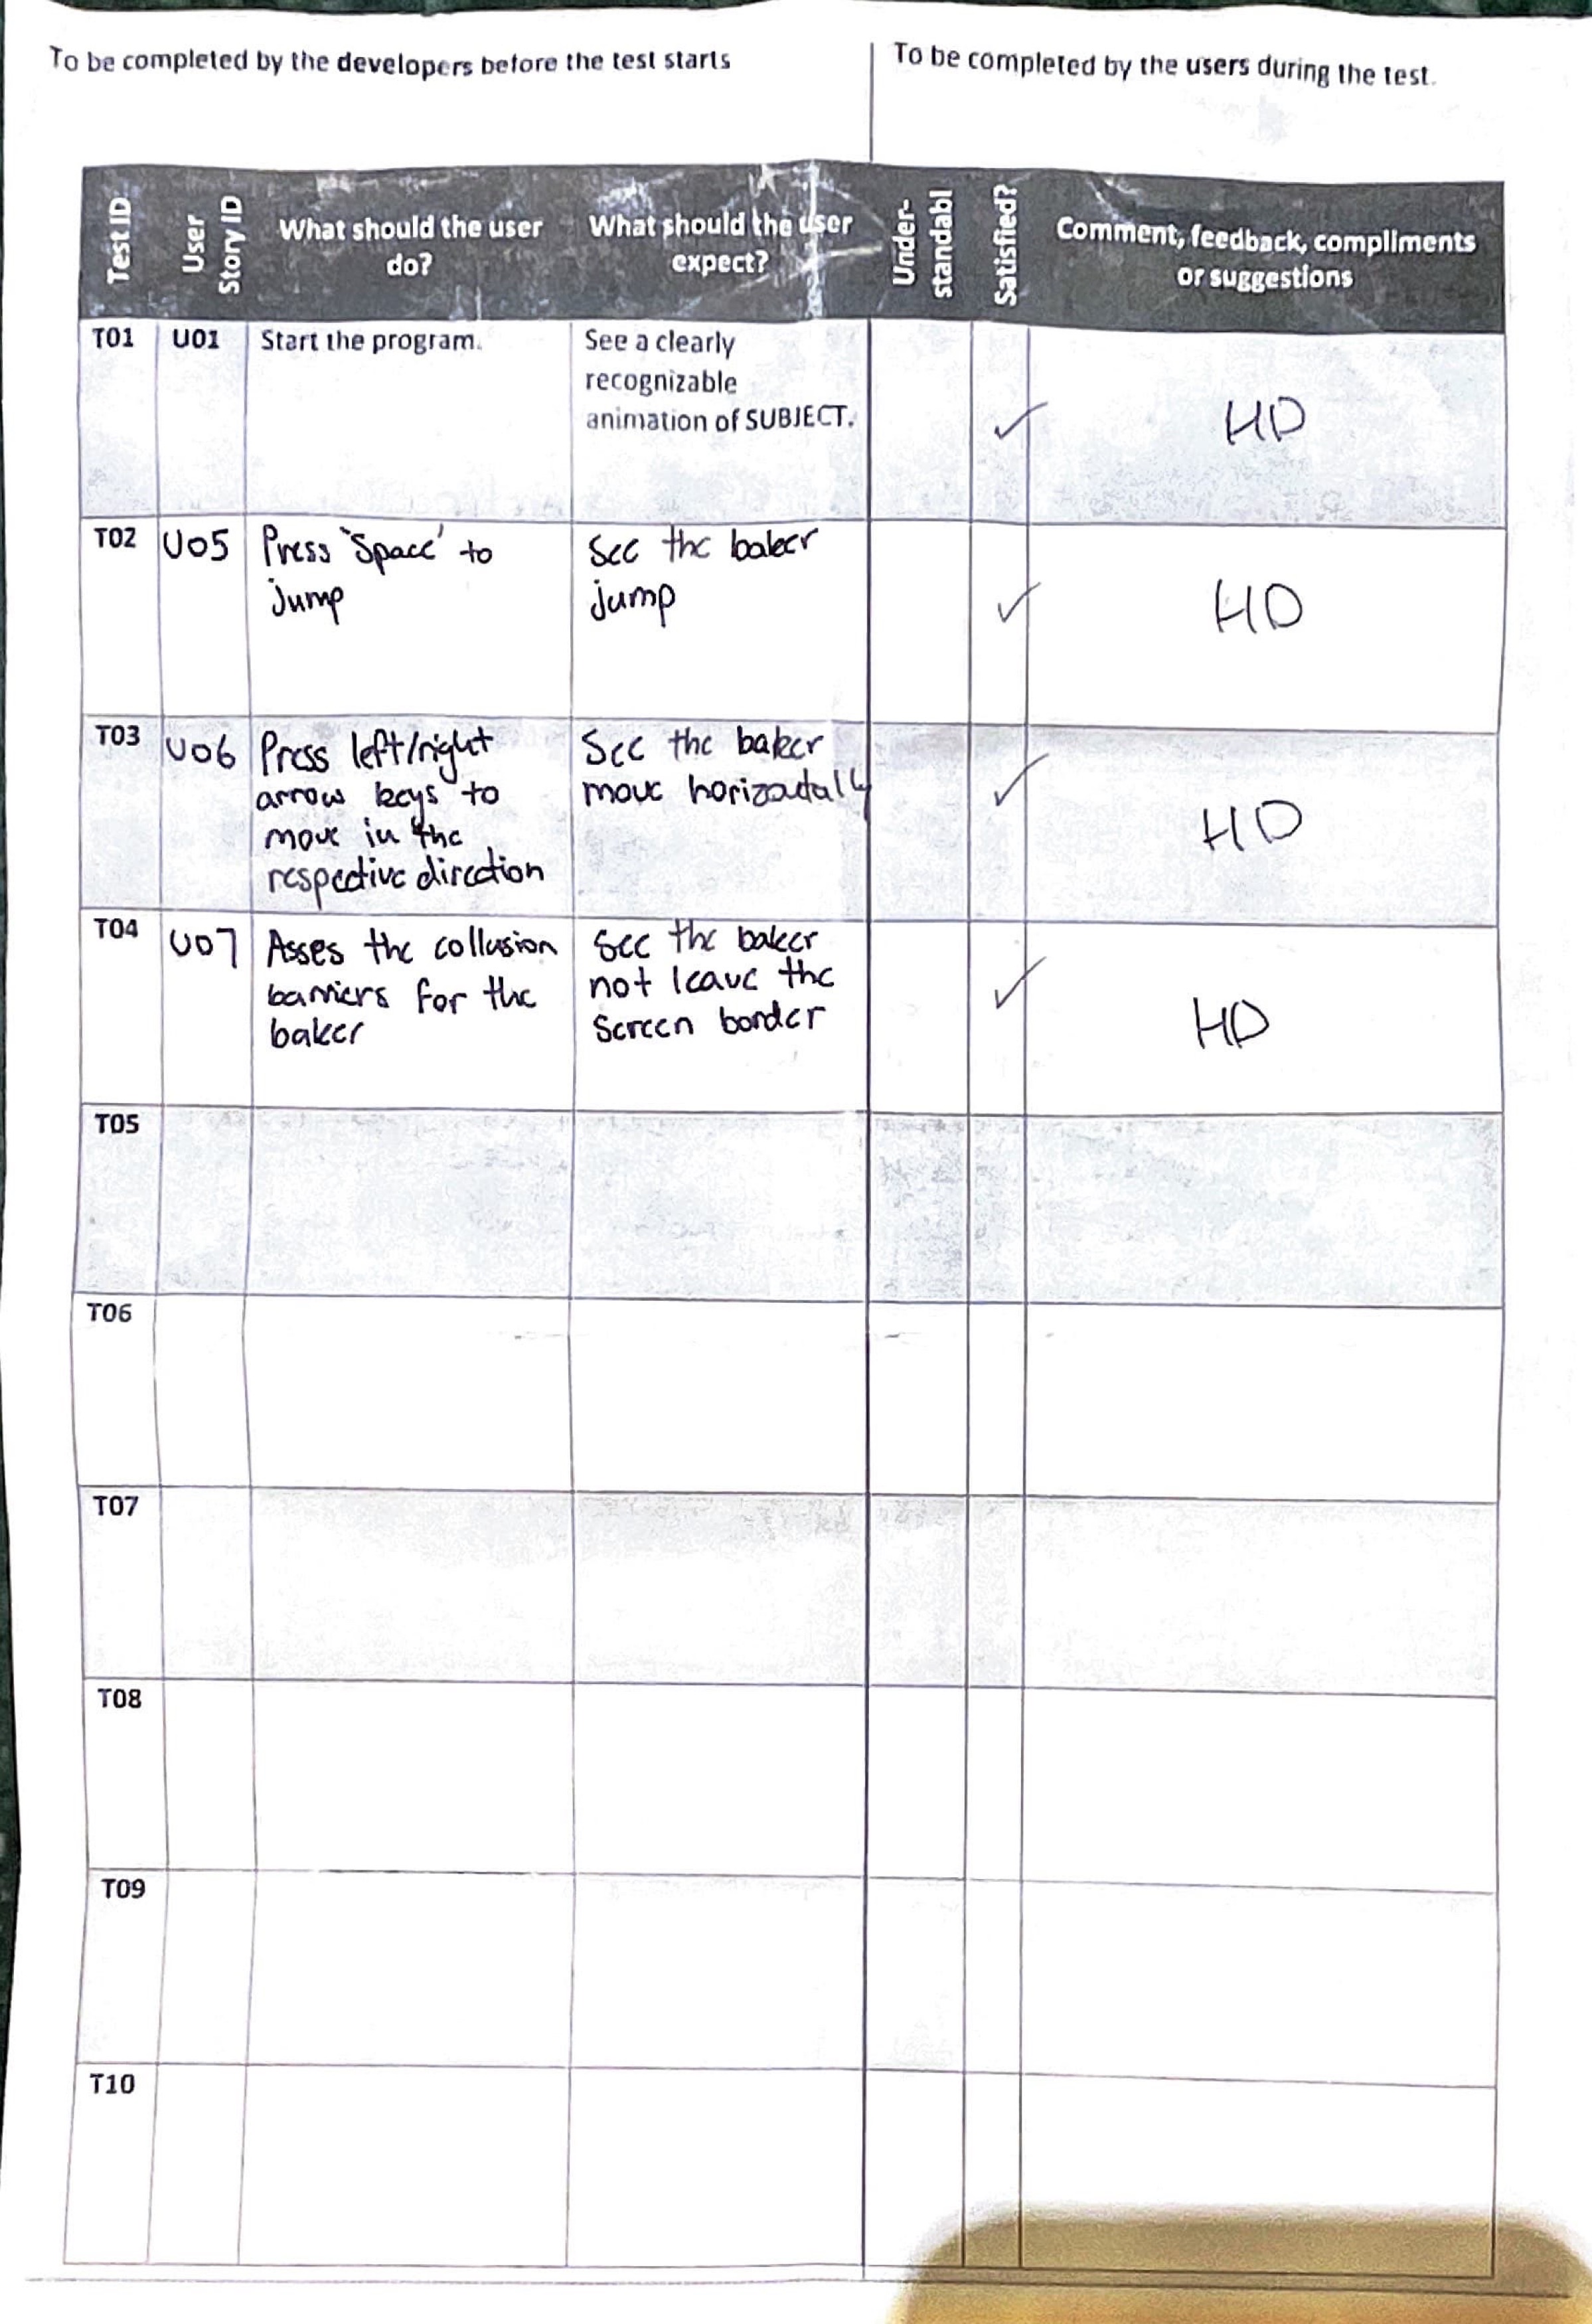 To be completed by the developers before the test starts
To be completed by the users during the test.
Test ID
User
Story ID
What should the user
do?
What should the user
expect?
Under-
standabl
Satisfied?
Comment, feedback, compliments
or suggestions
T01
U01
Start the program.
See a clearly
recognizable
animation of SUBJECT.
HD
T02
U05
Press 'Space' to
jump
See the baker
jump
HD
T03
U06
Press left/right
arrow keys to
move in the
respective direction
See the baker
move horizontally
HD
T04
U07
Asses the collusion
barriers for the
baker
See the baker
not leave the
screen border
HD
T05
T06
T07
T08
T09
T10